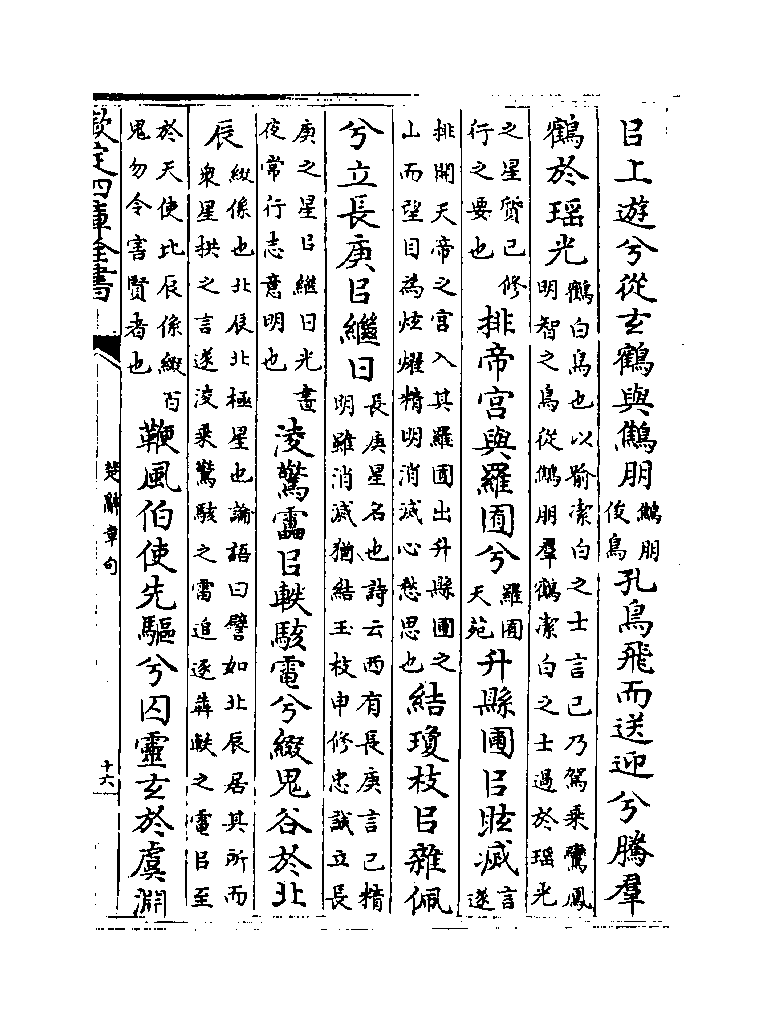 㠯上遊兮從玄鶴與鷦朋鷦朋俊鳥孔鳥飛而送迎兮騰羣
鶴於瑶光鶴白鳥也以喻潔白之士言已乃駕乘鸞鳳明智之鳥從鷦朋羣鶴潔白之士過於瑶光
之星質已修行之要也排帝宮與羅囿兮羅囿天苑升縣圃㠯眩滅言遂
排開天帝之宮入其羅囿出升縣圃之山而望目為炫燿精明消滅心愁思也結瓊枝㠯雜佩
兮立長庚㠯繼日長庚星名也詩云西有長庚言已精明雖消滅猶結玉枝申修忠誠立長
庚之星㠯繼日光晝夜常行志意明也淩驚靁㠯軼駭電兮綴鬼谷於北
辰綴係也北辰北極星也論語曰譬如北辰居其所而衆星拱之言遂淩乘驚駭之雷追逐犇軼之電㠯至
於天使北辰係綴百鬼勿令害賢者也鞭風伯使先驅兮囚靈玄於虞淵
欽定四庫全書
楚辭章句
十六